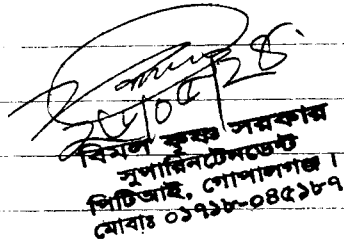 ২৮/০৫/২৪
বিমল কৃষ্ণ সরকার
সুপারিনটেনডেন্ট
পিটিআই, গোপালগঞ্জ।
মোবাঃ ০১৭১৮-০৪৫১৮৭